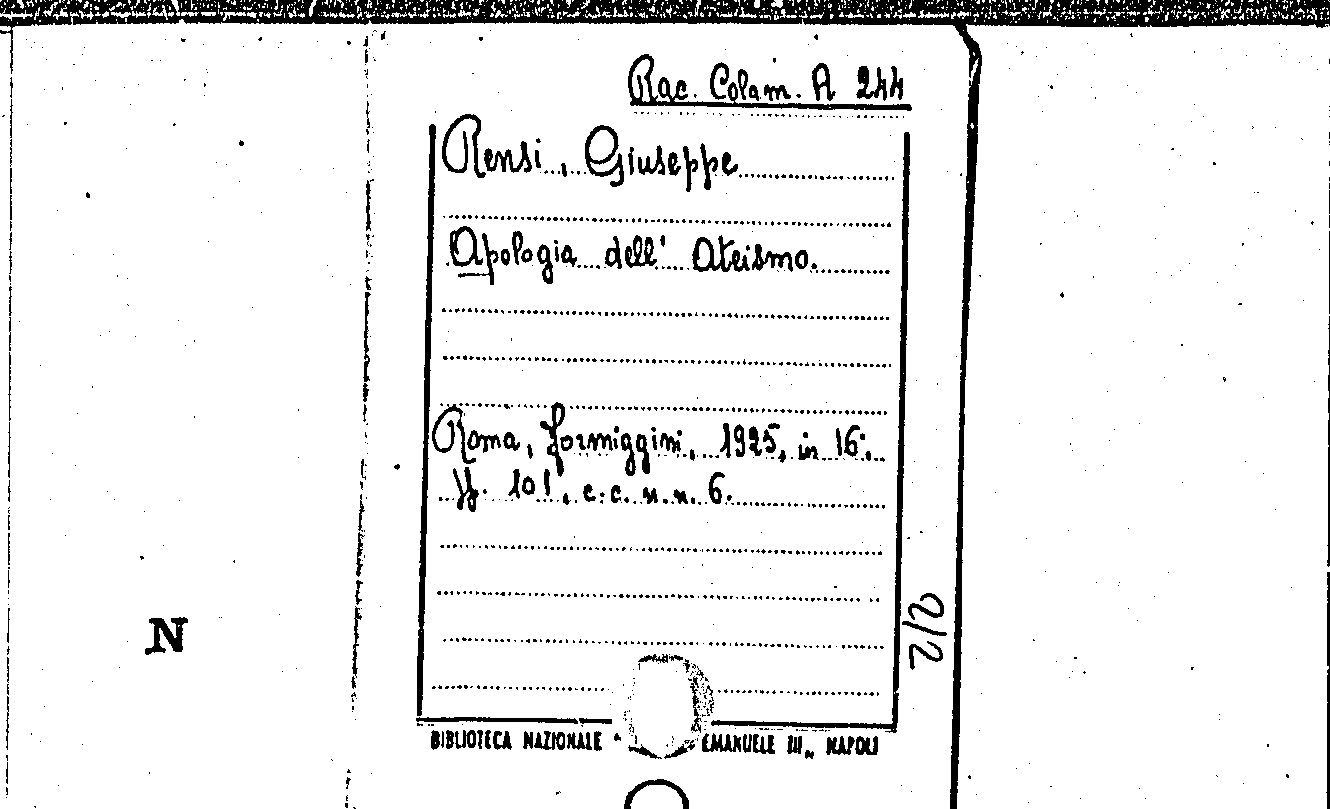 Rac. Colam. A 244
Rensi, Giuseppe
Apologia dell' Ateismo.
Roma, Formiggini, 1925, in 16°.
pp. 101, c.c. n.n. 6.
2/2
N
BIBLIOTECA NAZIONALE " EMANUELE III„ NAPOLI